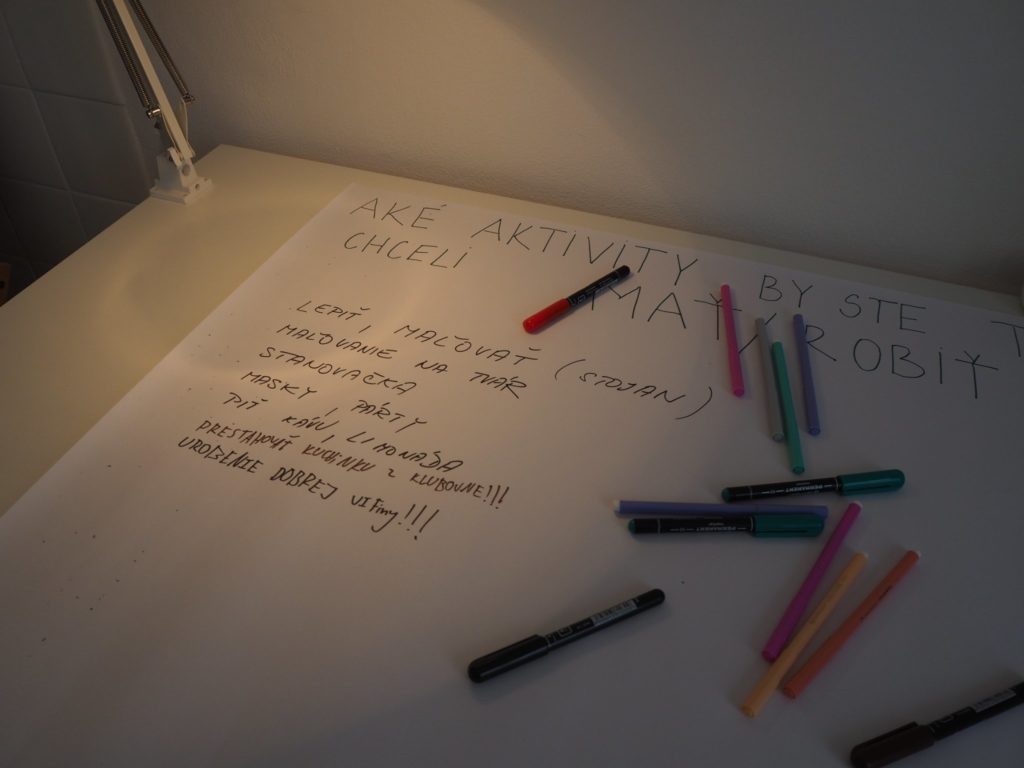 AKÉ AKTIVITY BY STE T
CHCELI MAŤ / ROBIŤ
LEPIŤ, MAĽOVAŤ (STOJAN)
MAĽOVANIE NA TVÁR
STANOVAČKA
MASKY, PÁRTY
PIŤ KÁVU, LIMONÁDA
PRESTAHOVŤ KUCHINKU Z KLUBOVNE!!!
UROBENIE DOBREJ VIFiny!!!
PERMANENT
PERMANENT